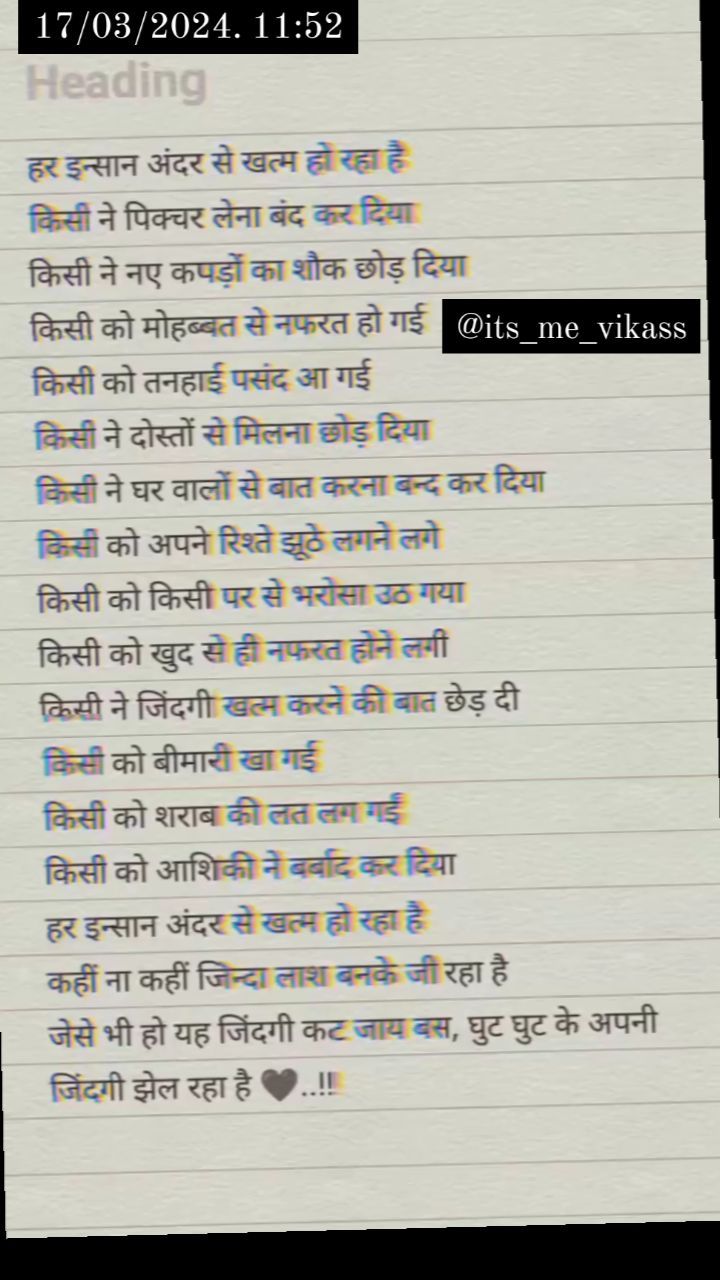 17/03/2024. 11:52
Heading
हर इन्सान अंदर से खत्म हो रहा है
किसी ने पिक्चर लेना बंद कर दिया
किसी ने नए कपड़ों का शौक छोड़ दिया
किसी को मोहब्बत से नफरत हो गई
@its_me_vikass
किसी को तनहाई पसंद आ गई
किसी ने दोस्तों से मिलना छोड़ दिया
किसी ने घर वालों से बात करना बन्द कर दिया
किसी को अपने रिश्ते झूठे लगने लगे
किसी को किसी पर से भरोसा उठ गया
किसी को खुद से ही नफरत होने लगी
किसी ने जिंदगी खत्म करने की बात छेड़ दी
किसी को बीमारी खा गई
किसी को शराब की लत लग गई
किसी को आशिकी ने बर्बाद कर दिया
हर इन्सान अंदर से खत्म हो रहा है
कहीं ना कहीं जिन्दा लाश बनके जी रहा है
जेसे भी हो यह जिंदगी कट जाय बस, घुट घुट के अपनी
जिंदगी झेल रहा है 🖤..!!